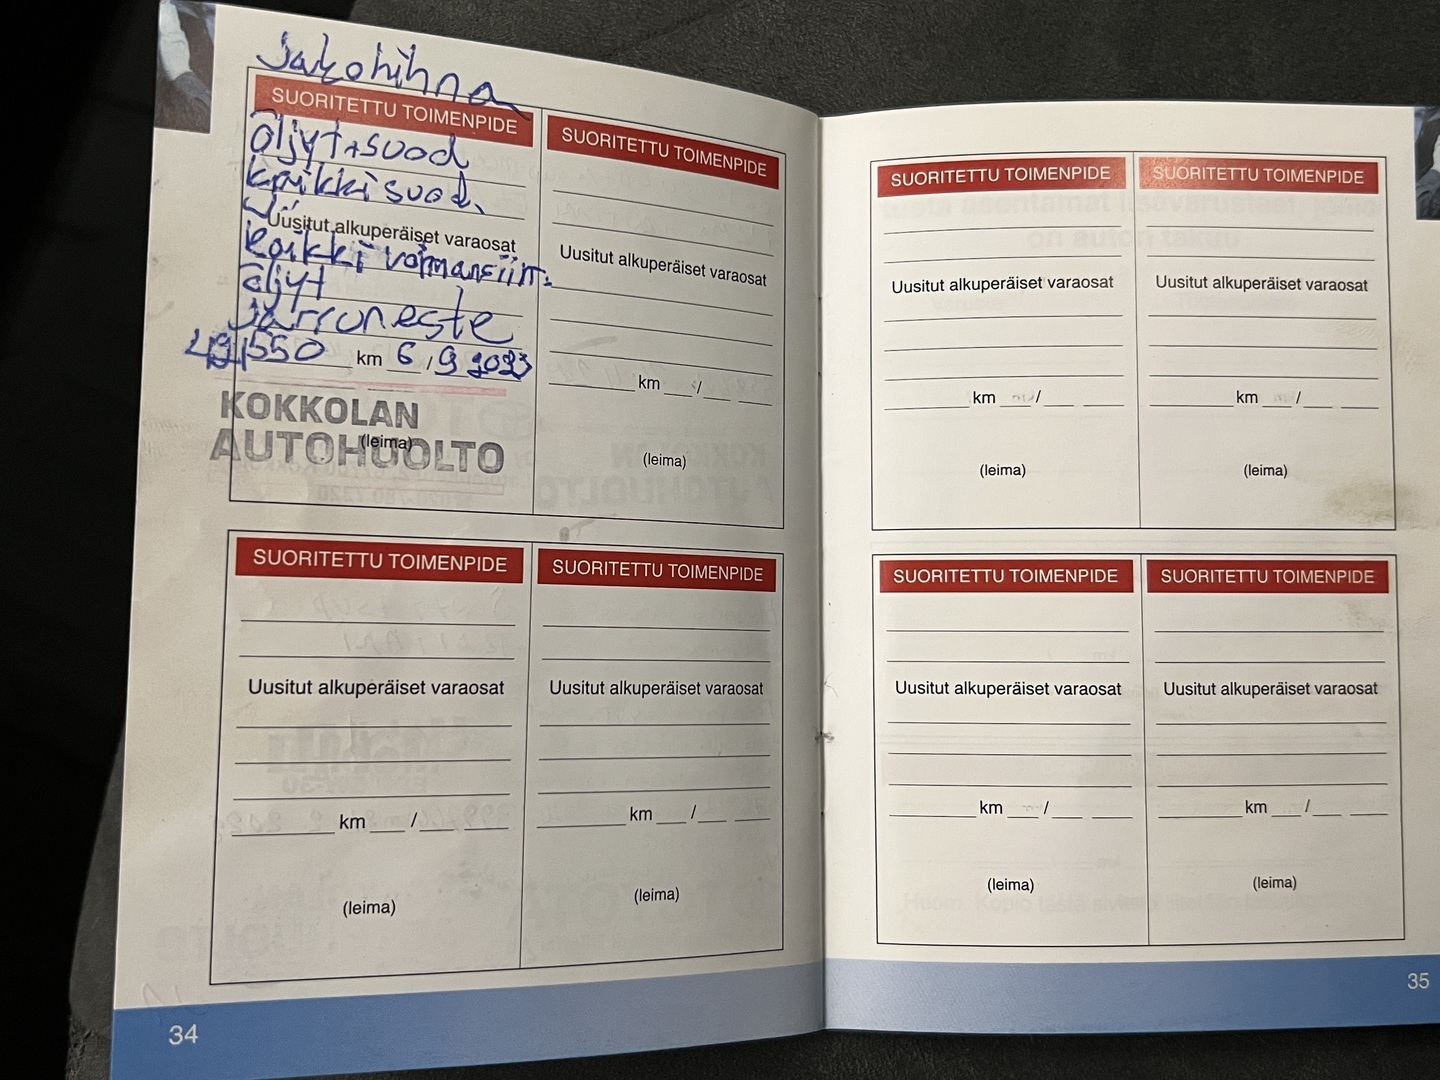 Jakohihna
SUORITETTU TOIMENPIDE
Öljyt+suod
kaikki suod.
Uusitut alkuperäiset varaosat
kaikki voimansiirt.
öljyt
Jarruneste
550 km 6 / 9 2023
KOKKOLAN
AUTOHUOLTO
(leima)
SUORITETTU TOIMENPIDE
Uusitut alkuperäiset varaosat
km /
(leima)
SUORITETTU TOIMENPIDE
Uusitut alkuperäiset varaosat
km /
(leima)
SUORITETTU TOIMENPIDE
Uusitut alkuperäiset varaosat
km /
(leima)
34
SUORITETTU TOIMENPIDE
Uusitut alkuperäiset varaosat
km /
(leima)
SUORITETTU TOIMENPIDE
Uusitut alkuperäiset varaosat
km /
(leima)
SUORITETTU TOIMENPIDE
Uusitut alkuperäiset varaosat
km /
(leima)
SUORITETTU TOIMENPIDE
Uusitut alkuperäiset varaosat
km /
(leima)
35